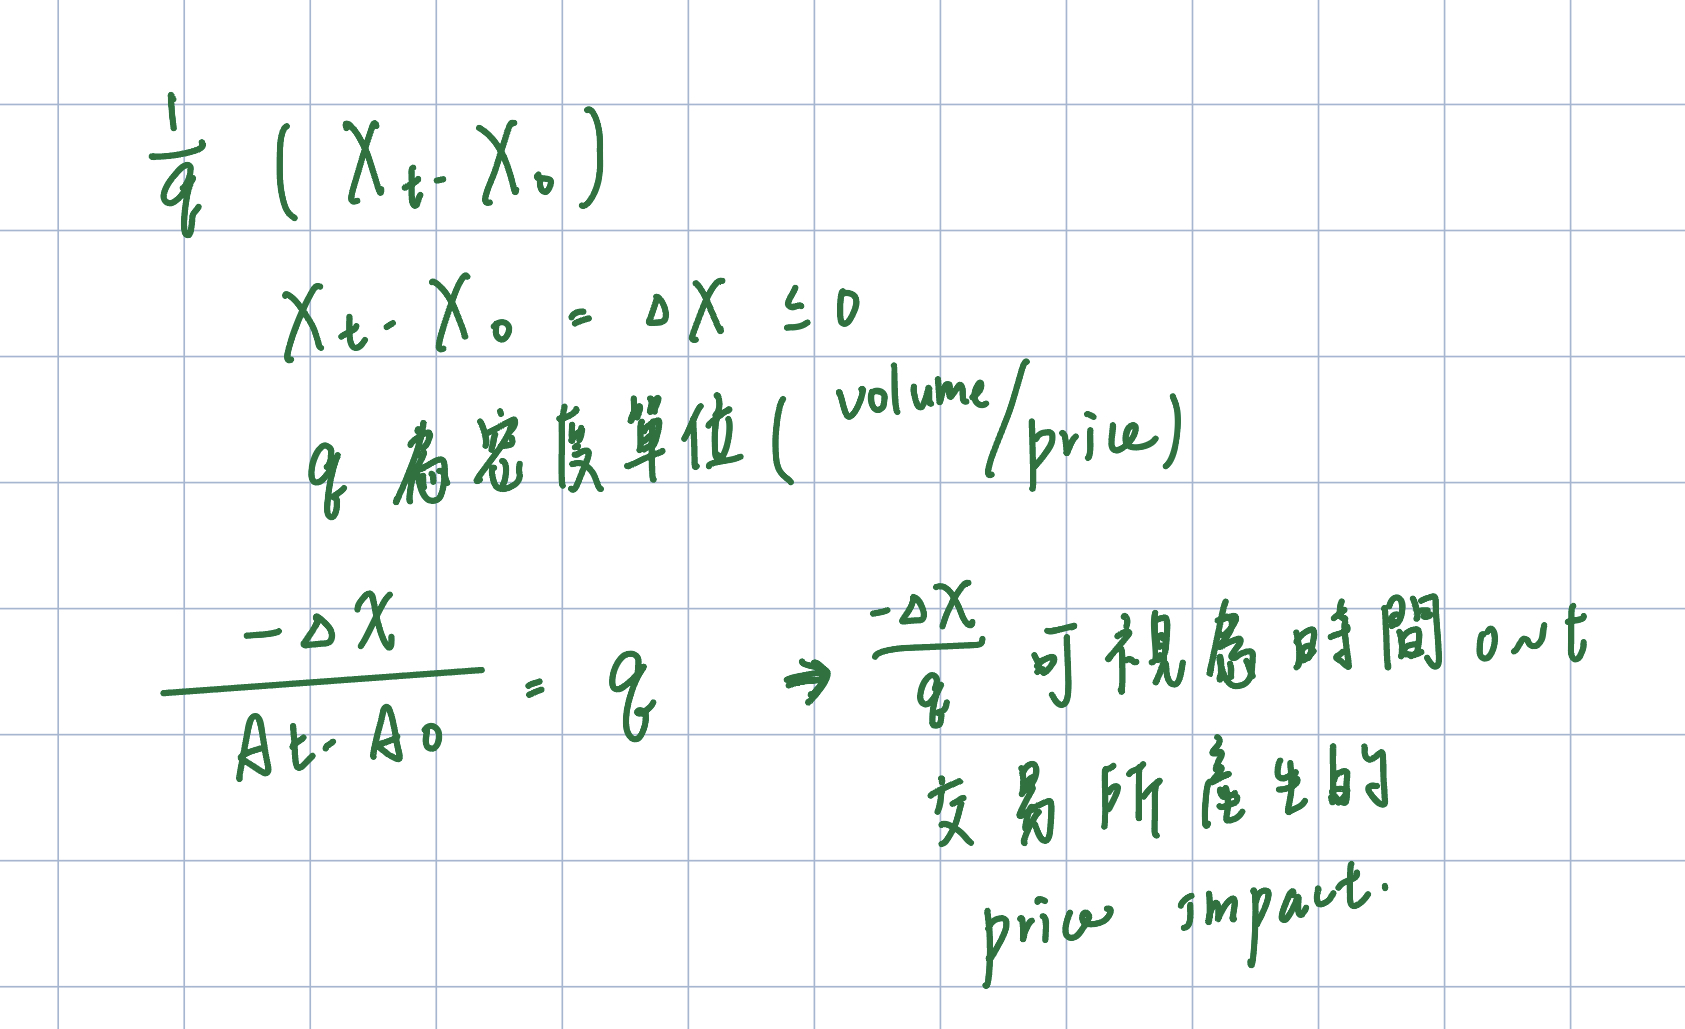 1/q (X_t - X_0)
X_t - X_0 = ΔX ≤ 0
q 為密度單位 (volume/price)
-ΔX / (A_t - A_0) = q → -ΔX/q 可視為時間 0~t
交易所產生的
price impact.